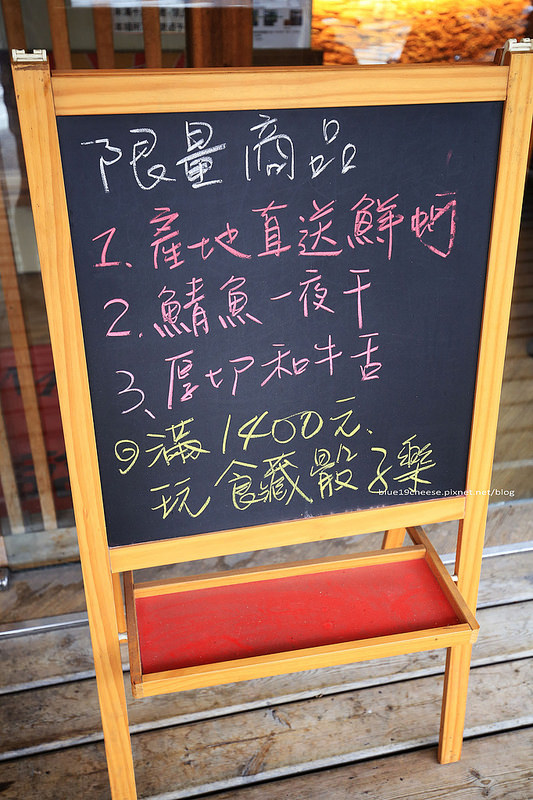 限量商品
1. 產地直送鮮蚵
2. 鯖魚一夜干
3、厚切和牛舌
滿1400元、
玩食藏骰子樂
blue19cheese.pixnet.net/blog